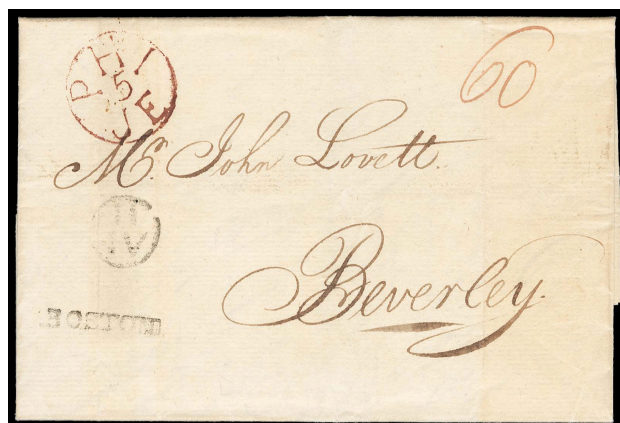 PHI
5
JE
60
Mr. John Lovett.
BOSTON
Beverley.